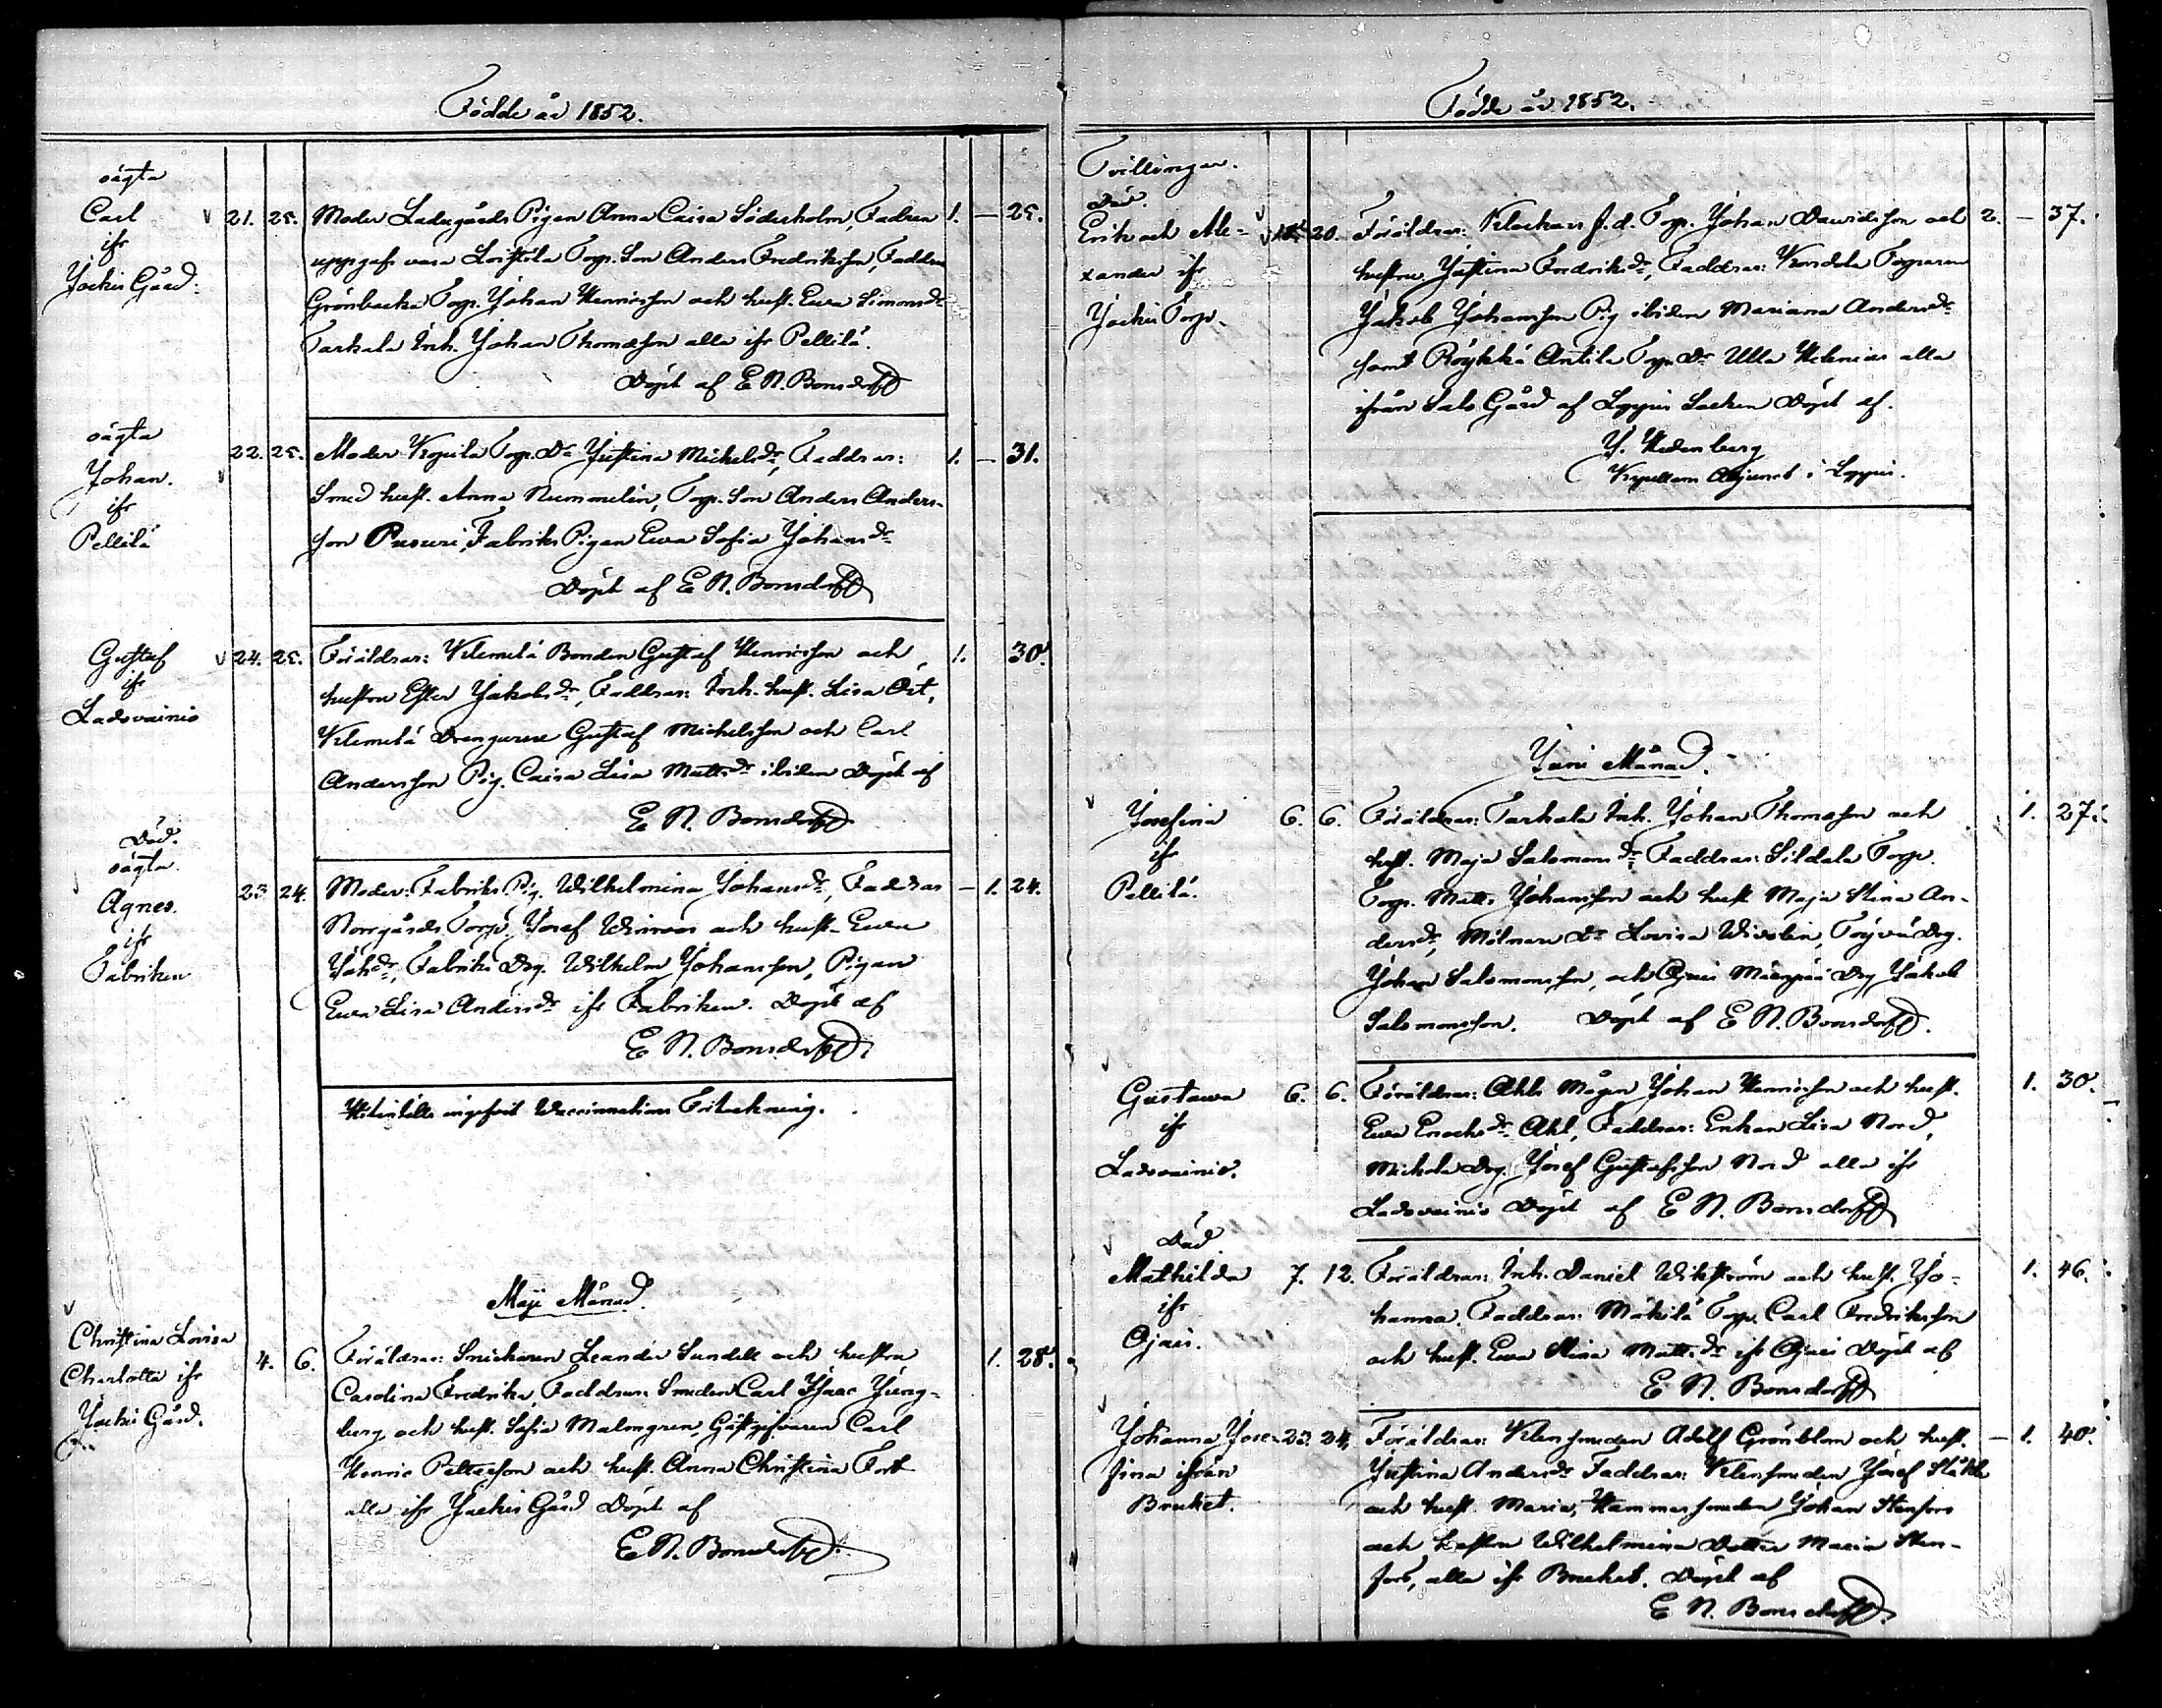 Födde år 1852.
oägta
Carl
ifr
Jockis Gård.
21. 25. Moder Ladugårds Pigan Anna Caisa Söderholm, Fadren 1. — 25.
uppgifs vara Torp. Son Anders Fredriksson, Faddrar
Grönbacka Torp. Johan Henricsson och hust. Ewa Simonsdr
Tarkala Inh. Johan Thomasson alla ifr Pellilä.
Döpt af E N. Bonsdorff
oägta
Johan.
ifr
Pellilä
22. 25. Moder Torp. Dr Justina Michelsdr, Faddrar: 1. — 31.
Smed hust. Anna Nummelin, Torp. Son Anders Anders-
son Pusuri, Fabriks Pigan Ewa Sofia Johansdr
Döpt af E N. Bonsdorff
Gustaf
ifr
Ladovainio
24. 25. Föräldrar: Klemelä Bonden Gustaf Henricsson och 1. 30.
hustru Ester Jakobsdr, Faddrar: Inh. hust. Lisa Ört,
Klemelä Drengarne Gustaf Michelsson och Carl
Andersson Pig. Caisa Lisa Mattsdr ibidem Döpt af
E N. Bonsdorff
Död.
oägta.
Agnes.
ifr
Fabriken
23 24. Moder: Fabriks Pig. Wilhelmina Johansdr, Faddrar — 1. 24.
Norrgårds Torp. Josef och hust. Ewa
Johdr, Fabriks Drg. Wilhelm Johansson, Pigan
Ewa Lisa Andersdr ifr Fabriken. Döpt af
E N. Bonsdorff
Hitintills införd Waccinnations Förtekning.
Maji Månad.
Christina Lovisa
Charlotta ifr
Jockis Gård.
4. 6. Föräldrar: Snickaren Leander Sundell och hustru 1. 28.
Carolina Fredrika, Faddrar: Smeden Carl Isaac Ljung-
berg och hust. Sofia Malmgren, Gästgifvaren Carl
Henric Pettersson och hust. Anna Christina Fort
alla ifr Jockis Gård Döpt af
E N. Bonsdorff
Födde år 1852.
Tvillingar.
Död.
Erik och Ale-
xander ifr
Jockis Torp.
20. Föräldrar: Klockars f.d. Torp. Johan Davidsson och 2. — 37.
hustru Justina Fredriksdr, Faddrar: Torparen
Jakob Johansson Pig ibidem Mariana Andersdr
samt Röykkä Antila Torp. Dr Ulla Helenius alla
ifrån Salo Gård af Loppis Socken Döpt af.
J. Hedenberg
Kapellans Adjunct i Loppis.
Juni Månad.
Josefina
ifr
Pellilä.
6. 6. Föräldrar: Tarkala Inh. Johan Thomasson och 1. 27.
hust. Maja Salomonsdr Faddrar: Sildala Torp.
Torp. Matts Johansson och hust Maja Stina An-
dersdr, Mölnare Dr Lovisa Drg.
Johan Salomonsson, och Ojais Drg Jakob
Salomonsson. Döpt af E N. Bonsdorff.
Gustawa
ifr
Ladovainio.
6. 6. Föräldrar: Ahls Mågen Johan Henricsson och hust. 1. 30.
Ewa Enochsdr Ahl, Faddrar: Enkan Lisa Nord,
Mickola Drg. Josef Gustafsson Nord alla ifr
Ladovainio Döpt af E N. Bonsdorff
Död
Mathilda
ifr
Ojais.
7. 12. Föräldrar: Inh. Daniel Wikström och hust. Jo- 1. 46.
hanna. Faddrar: Mäkilä Torp. Carl Fredriksson
och hust. Ewa Stina Mattsdr ifr Ojais Döpt af
E N. Bonsdorff
Johanna Jose-
fina ifrån
Bruket.
23. 24. Föräldrar: Klensmeden Adolf Grönblom och hust. — 1. 40.
Justina Andersdr Faddrar: Klensmeden Josef
och hust. Maria, Hammarsmeden Johan Stenfors
och hustru Wilhelmina Dotter Maria Sten-
fors, alla ifr Bruket. Döpt af
E N. Bonsdorff.